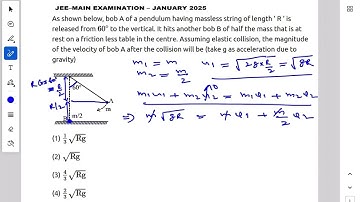 JEE-MAIN EXAMINATION – JANUARY 2025
As shown below, bob A of a pendulum having massless string of length ' R ' is
released from 60° to the vertical. It hits another bob B of half the mass that is at
rest on a friction less table in the centre. Assuming elastic collision, the magnitude
of the velocity of bob A after the collision will be (take g as acceleration due to
gravity)
m₁ = m
m₂ = m/2
u₁ = √(2gxR/2) = √gR
m₁u₁ + m₂u₂ = m₁v₁ + m₂v₂
0
⇒ m√gR = mv₁ + m/2 v₂
= R/2
R/2
60°
A
m
B
m/2
(1) 1/3 √Rg
(2) √Rg
(3) 4/3 √Rg
(4) 2/3 √Rg